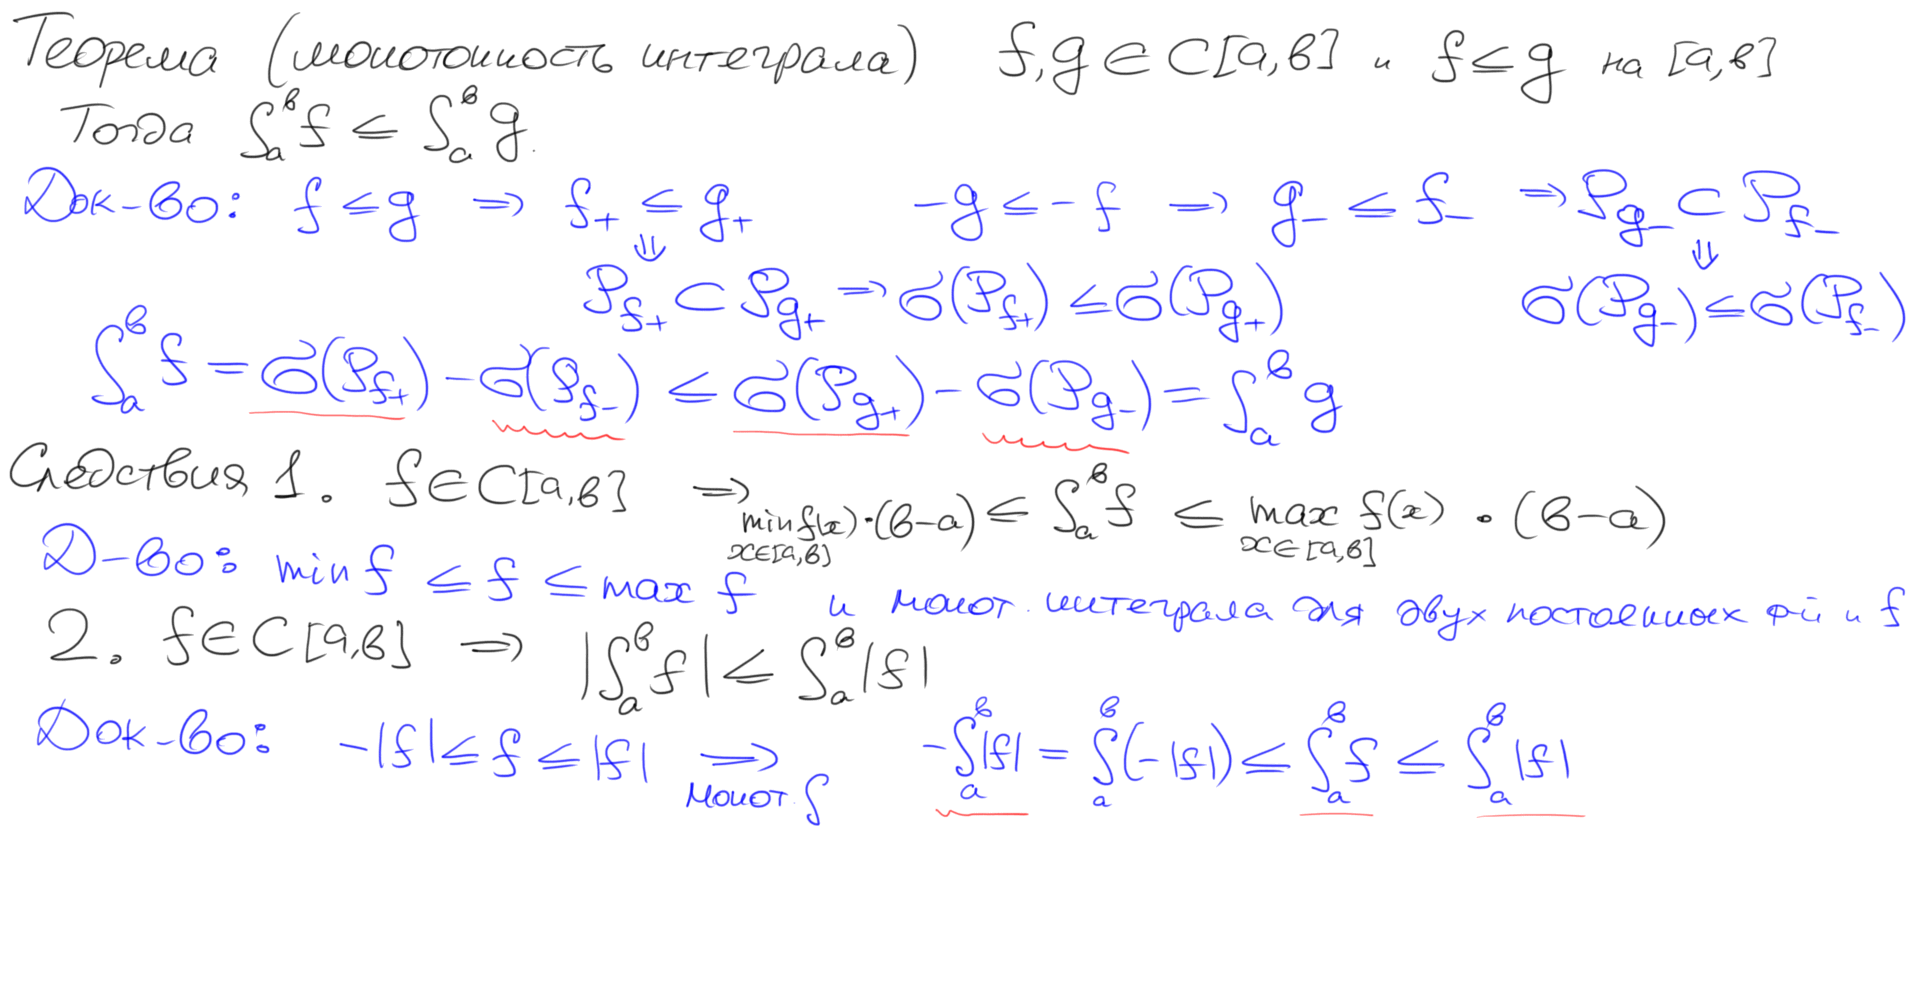 Теорема (монотонность интеграла) f,g ∈ C[a,b] и f ≤ g на [a,b]
Тогда ∫_a^b f ≤ ∫_a^b g.
Док-во: f ≤ g ⇒ f₊ ≤ g₊ -g ≤ -f ⇒ g₋ ≤ f₋ ⇒ P_{g₋} ⊂ P_{f₋}
⇓ ⇓
P_{f₊} ⊂ P_{g₊} ⇒ σ(P_{f₊}) ≤ σ(P_{g₊}) σ(P_{g₋}) ≤ σ(P_{f₋})
∫_a^b f = σ(P_{f₊}) - σ(P_{f₋}) ≤ σ(P_{g₊}) - σ(P_{g₋}) = ∫_a^b g
Следствия 1. f ∈ C[a,b] ⇒ min_{x∈[a,b]} f(x)·(b-a) ≤ ∫_a^b f ≤ max_{x∈[a,b]} f(x) · (b-a)
Д-во: min f ≤ f ≤ max f и монот. интеграла для двух постоянных ф-й и f
2. f ∈ C[a,b] ⇒ |∫_a^b f| ≤ ∫_a^b |f|
Док-во: -|f| ≤ f ≤ |f| ⇒ -∫_a^b |f| = ∫_a^b (-|f|) ≤ ∫_a^b f ≤ ∫_a^b |f|
монот. ∫